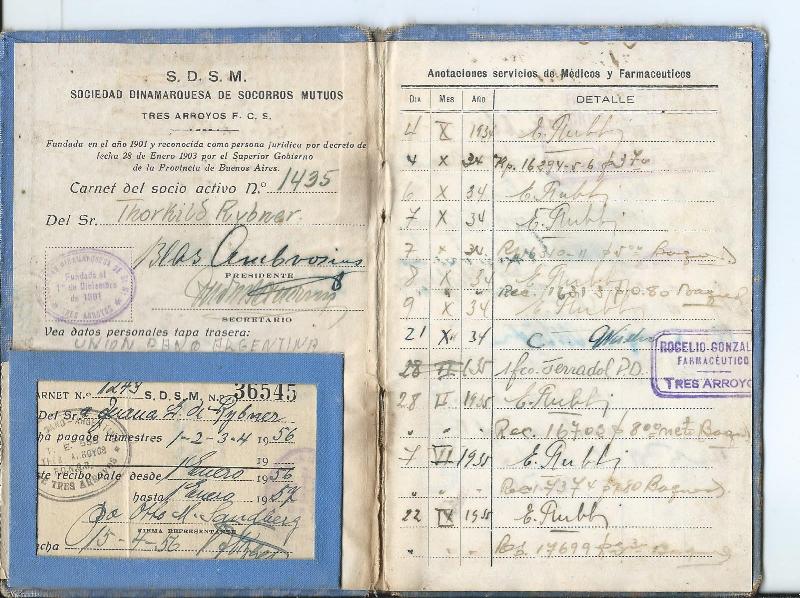 S. D. S. M.
SOCIEDAD DINAMARQUESA DE SOCORROS MUTUOS
TRES ARROYOS F. C. S.
Fundada en el año 1901 y reconocida como persona jurídica por decreto de
fecha 28 de Enero 1903 por el Superior Gobierno
de la Provincia de Buenos Aires.
Carnet del socio activo N.º 1435
Del Sr. Thorkild Rybner
Blas Ambrosius
PRESIDENTE
SECRETARIO
Fundada el
1º de Diciembre
de 1901
TRES ARROYOS
Vea datos personales tapa trasera:
UNION DANO ARGENTINA
ARNET N.º 1243 S. D. S. M. N.º 36545
Del Sr. Juana L. de Rybner
ha pagado trimestres 1-2-3-4 1956
19
ste recibo vale desde 1 Enero 1956
hasta 1 Enero 1957
Otto M. Sandberg
FIRMA REPRESENTANTE
cha 15-4-56
TRES ARROYOS
Anotaciones servicios de Médicos y Farmaceuticos
DIA MES AÑO DETALLE
4 X 1934 E. Rubbj
4 X 34 Rp. 16294-5-6 $ 370
6 X 34 E. Rubbj
7 X 34 E. Rubbj
7 X 34
8 X 34 E. Rubbj
" " Rec. 16313 $ 10.80
9 X 34 Rubbj
21 X 34 C
28 VI 1935 1 fco. Ferradol P.D.
28 VI 1935 E. Rubbj
" " " Rec. 16703 $ 8
7 VII 1935 E. Rubbj
" " " Rec. 17374
22 IX 1935 E. Rubbj
" " " 17699
ROGELIO GONZAL
FARMACÉUTICO
TRES ARROYO